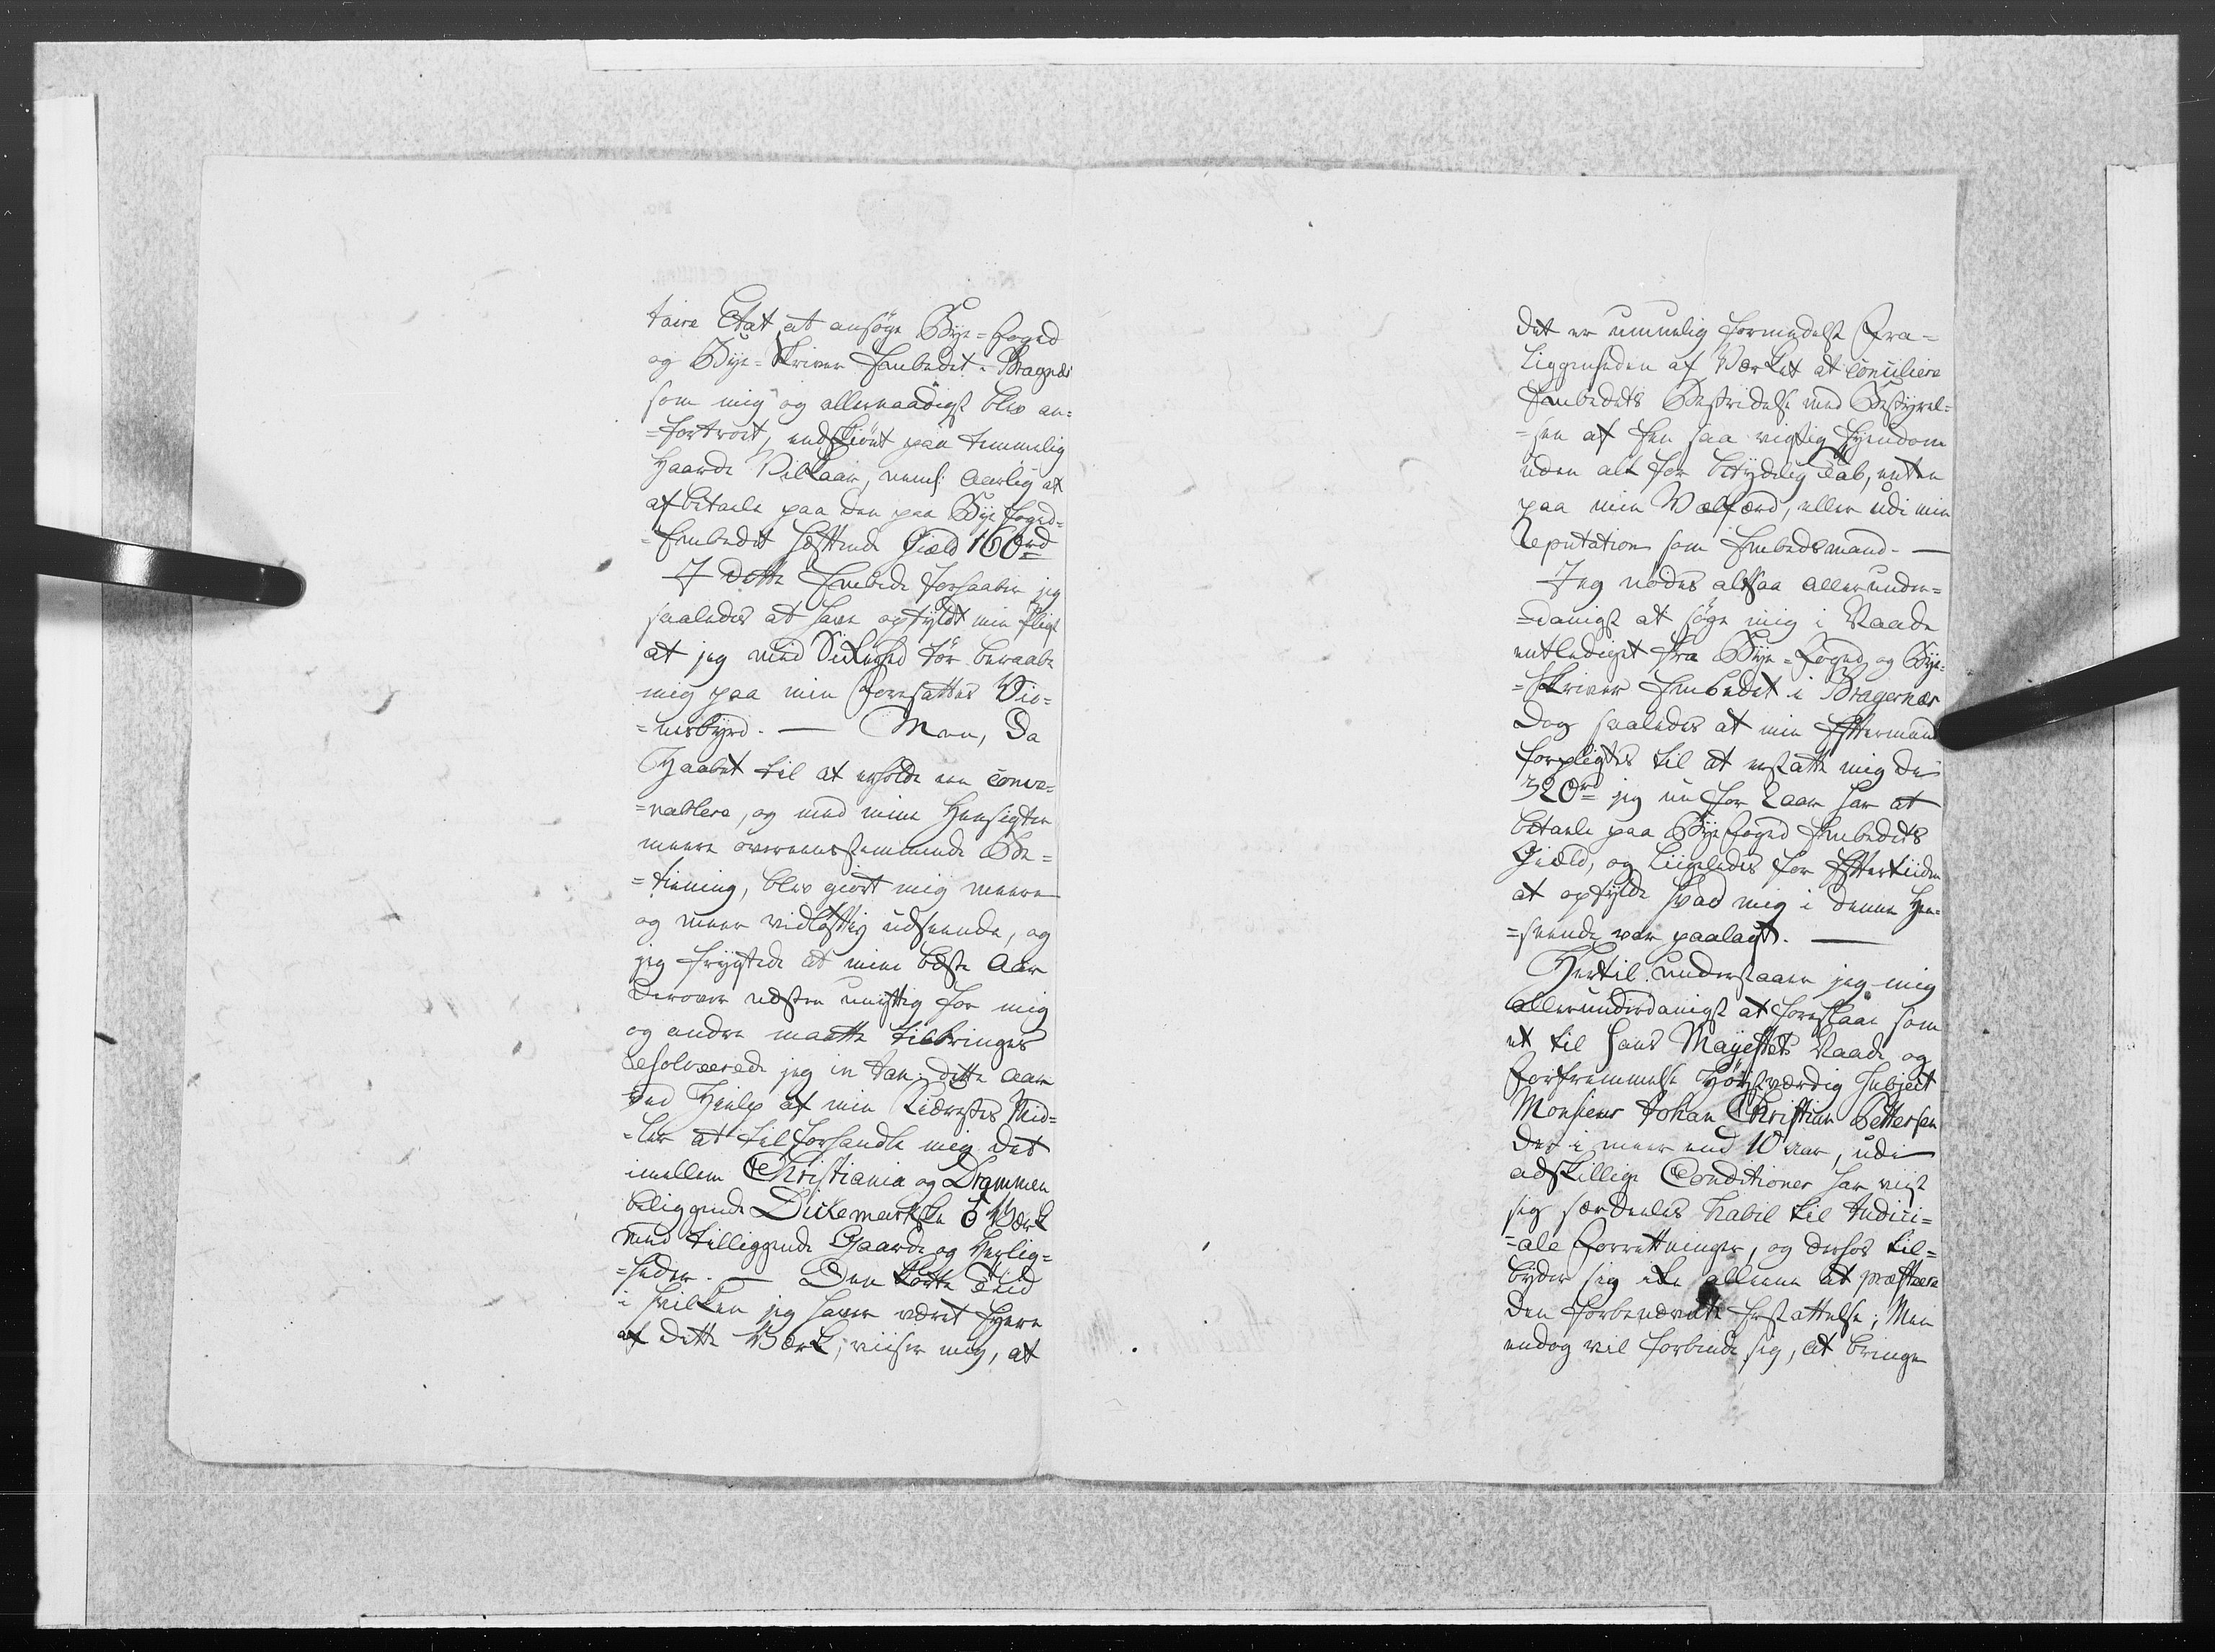 taire Etat at ansøge Bye=foged
og Bye=Skriver Embedet i Bragnæs
som mig og allernaadigst blev an=
=fortroet, endskiønt paa temmelig
haarde Vilkaar, neml: Aarlig at
afbetale paa den paa Byefoged=
=Embedet hæftende Giæld 160rd
I dette Embede forhaaber jeg
saaledes at have opfyldt min Pligt
at jeg med Sikerhed tør beraabe
mig paa min Foresattes Vid=
=nesbyrd. — Men, Da
Haabet til at erholde een conve=
=nablere, og med mine Hensigter
meere overeensstemmende Be=
=tiening, blev giort mig meere
og meer vidløftig udseende, og
jeg frygtede at mine beste Aar
derover udsten unyttig for mig
og andre maatte tilbringes
resolverede jeg in Jan: dette Aar
ved Hielp af min Kiærestes Mid=
=ler at tilforhandle mig det
imellem Christiania og Drammen
beliggende Dikemarkske Værk
med tilliggende Gaarde og Herlig=
=heder. — Den korte Tiid
i hvilken jeg haver været Eyere
af dette Værk, viiser mig, at
det er umuelig formedelst Fra=
Liggenheden af Værket at conciliere
Embedets Bestridelse med Bestyrel=
=sen af Een saa vigtig Eyendom
uden alt for betydelig Tab, enten
paa min Velfærd, eller udi min
Reputation som Embedsmand. —
Jeg nødes altsaa allerunder=
=danigst at søge mig i Naade
entlediget fra Bye=foged og Bye=
=Skriver Embedet i Bragernæs
Dog saaledes at min Eftermand
forpligtes til at erstatte mig de
320rd jeg nu for 2 aar har at
betale paa Byefoged Embedets
Giæld, og Liigeledes for Eftertiiden
at opfylde hvad mig i denne Hen=
=seende var paalagt. —
Hertil understaaer jeg mig
allerunderdanigst at foreslaae som
et til Hans Mayestets Naade og
Forfremmelse Høystværdig Subject
Monsieur Johan Christian Pettersen
der i meer end 10 aar, udi
adskillige Conditioner har viist
sig særdeeles habil til Judici=
=ale Forretninger, og derhos til=
byder sig ikke alleene at præstere
den forbenævnte Erstattelse; Men
endog vil forbinde sig, at bringe